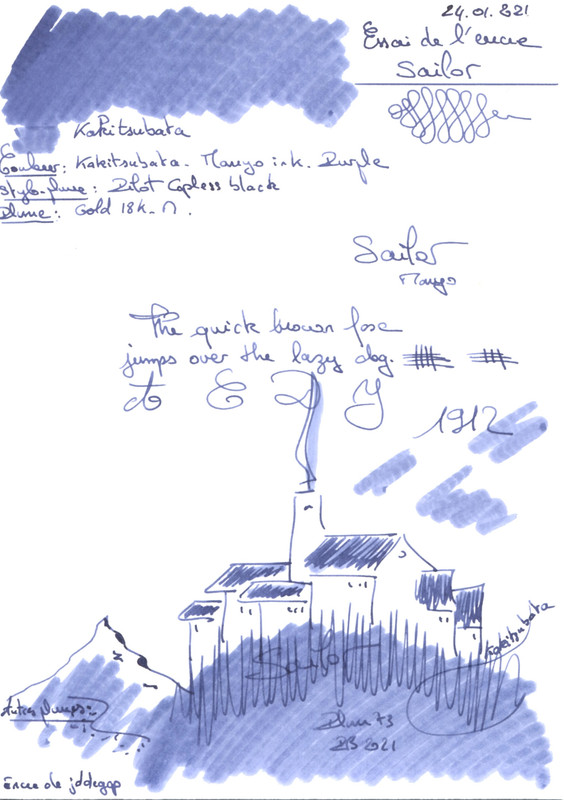 24.01.2021
Essai de l'encre
Sailor
Kakitsubata
Couleur: Kakitsubata - Manyo ink. Purple
Stylo-plume: Pilot Capless black
Plume: Gold 18K - M.
Sailor
Manyo
The quick brown fox
jumps over the lazy dog.
A E D Y
1912
Sailor
Kakitsubata
Autres plumes:
Plum 73
2021
Encre de jddegap